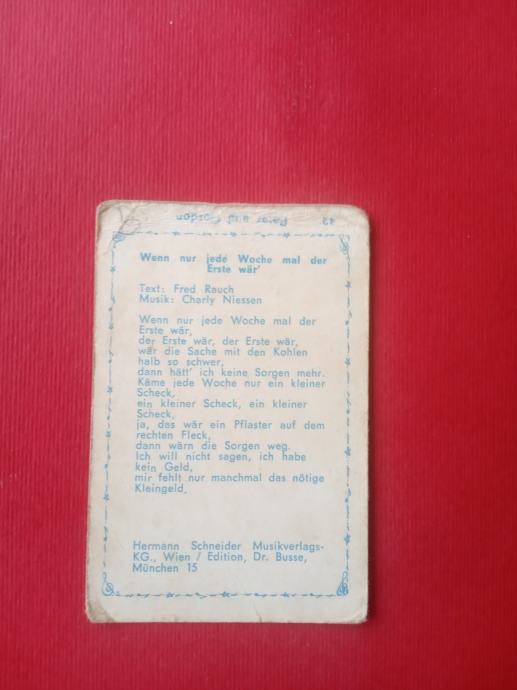 42. Peter and Gordon
Wenn nur jede Woche mal der
Erste wär'
Text: Fred Rauch
Musik: Charly Niessen
Wenn nur jede Woche mal der
Erste wär,
der Erste wär, der Erste wär,
wär die Sache mit den Kohlen
halb so schwer,
dann hätt' ich keine Sorgen mehr.
Käme jede Woche nur ein kleiner
Scheck,
ein kleiner Scheck, ein kleiner
Scheck,
ja, das wär ein Pflaster auf dem
rechten Fleck,
dann wärn die Sorgen weg.
Ich will nicht sagen, ich habe
kein Geld,
mir fehlt nur manchmal das nötige
Kleingeld.
Hermann Schneider Musikverlags-
KG., Wien / Edition, Dr. Busse,
München 15